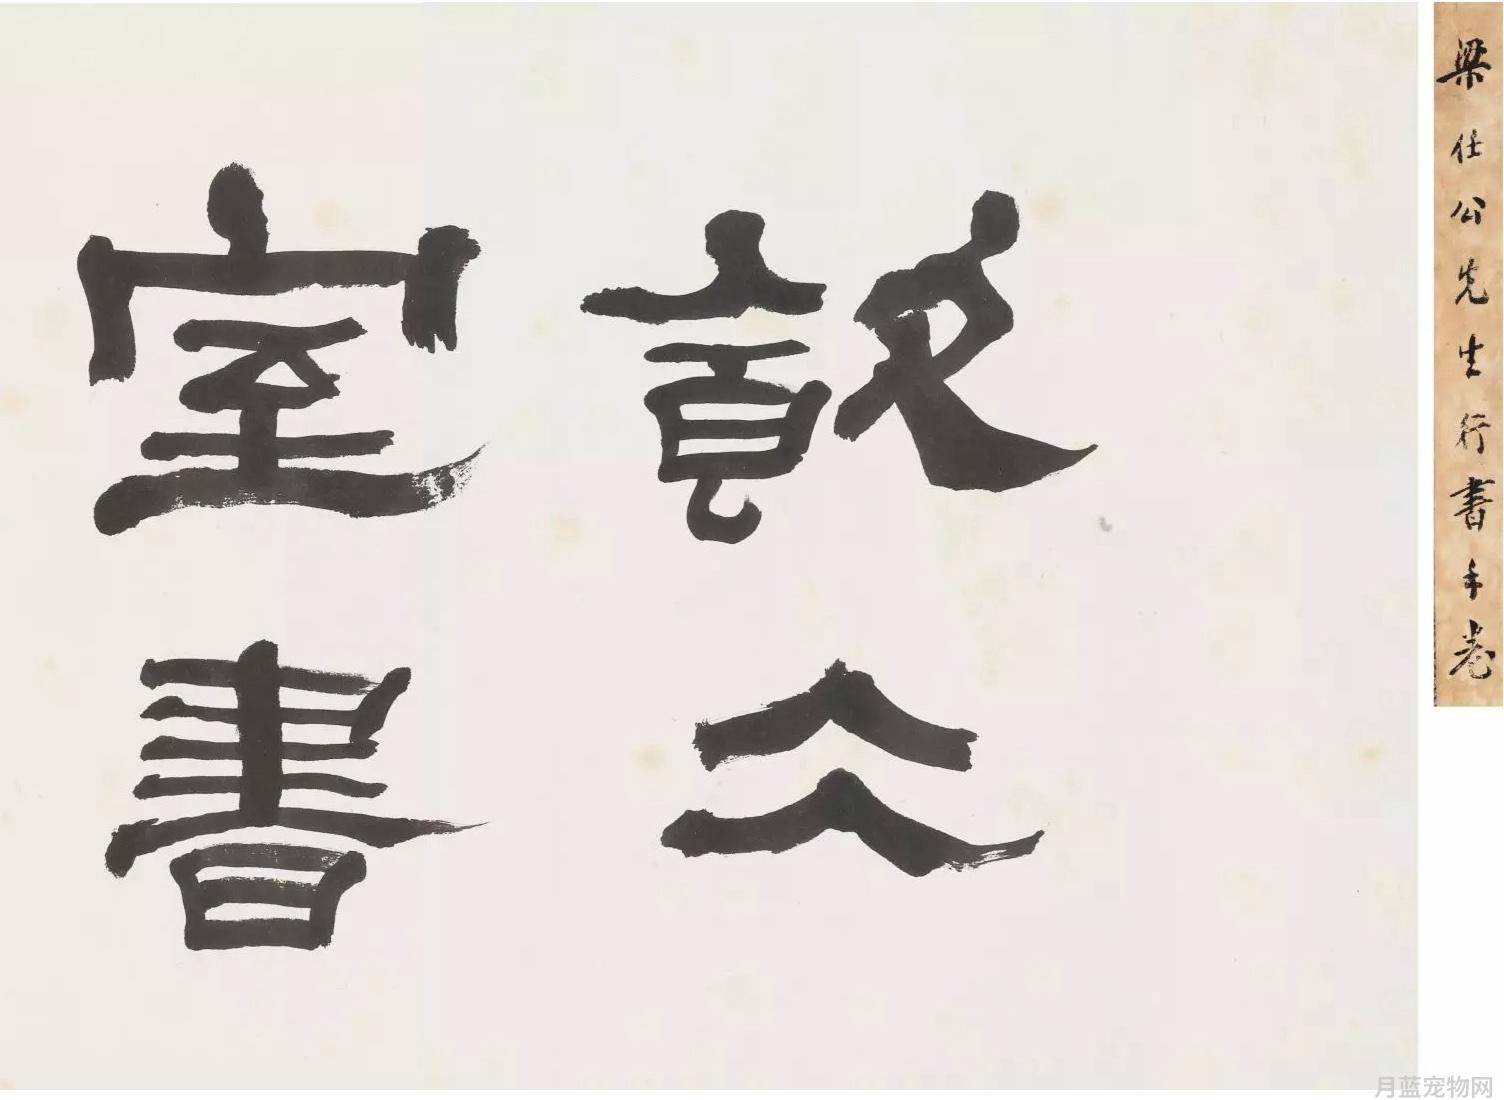 梁任公先生行書手卷
飲仌
室書
月蓝宠物网